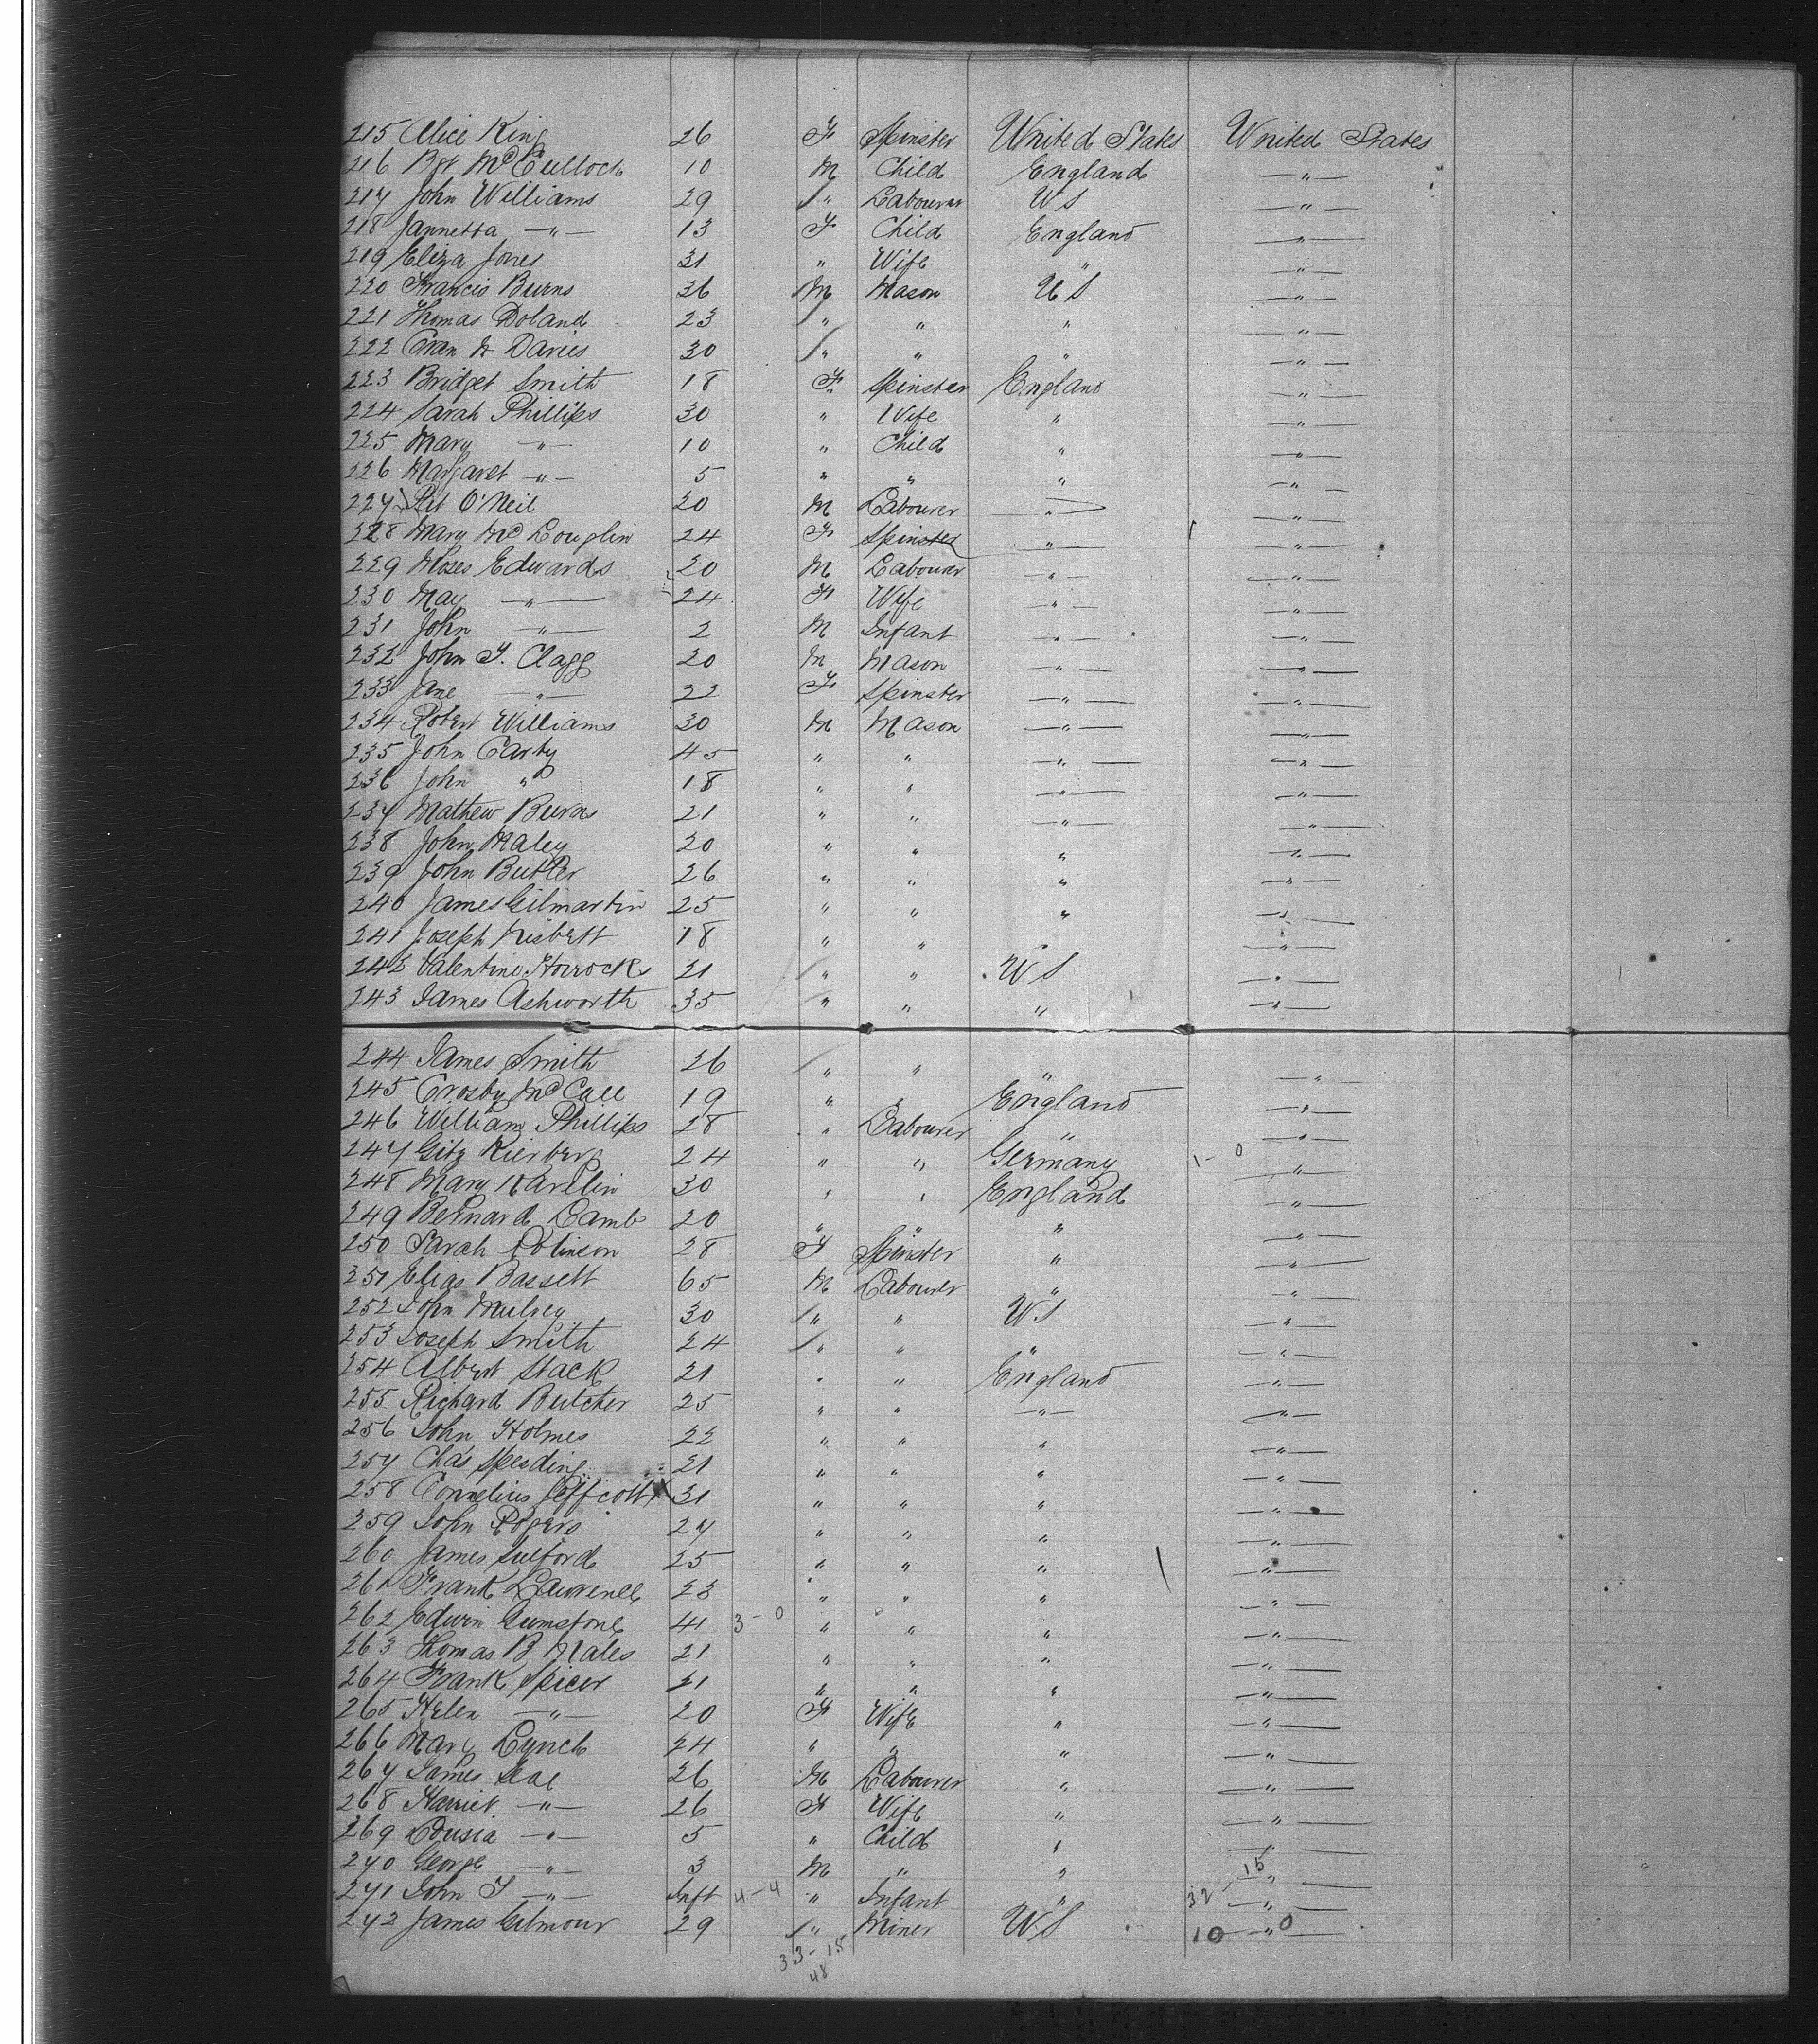 215 Alice King 26 F Spinster United States United States
216 Bgt McCulloch 10 M Child England — " —
217 John Williams 29 " Labourer U S — " —
218 Jannetta — " — 13 F Child England — " —
219 Eliza Jones 31 " Wife " — " —
220 Francis Burns 36 M Mason U S — " —
221 Thomas Doland 23 " " " — " —
222 Evan W Davies 30 " " " — " —
223 Bridget Smith 18 F Spinster England — " —
224 Sarah Phillips 30 " Wife " — " —
225 Mary — " — 10 " Child " — " —
226 Margaret — " — 5 " " " — " —
227 Pat O'Neil 20 M Labourer — " — — " —
228 Mary Mc Louglin 24 F Spinster — " — — " —
229 Moses Edwards 20 M Labourer — " — — " —
230 May — " — 24 F Wife — " — — " —
231 John — " — 2 M Infant — " — — " —
232 John T. Clagg 20 M Mason — " — — " —
233 Jane — " — 22 F Spinster — " — — " —
234 Robert Williams 30 M Mason — " — — " —
235 John Carty 45 " " — " — — " —
236 John " 18 " " — " — — " —
237 Mathew Burns 21 " " — " — — " —
238 John Maley 20 " " " — " —
239 John Butler 26 " " " — " —
240 James Gilmartin 25 " " " — " —
241 Joseph Nisbett 18 " " " — " —
242 Valentine Horrocks 21 " " U S — " —
243 James Ashworth 35 " " " — " —
244 James Smith 26 " " " — " —
245 Crosby McCall 19 " " England — " —
246 William Phillips 28 " Labourer " — " —
247 24 " " Germany 1 - 0 — " —
248 Mary 30 " " England — " —
249 Bernard Lamb 20 " " " — " —
250 Sarah Robinson 28 F Spinster " — " —
251 Elias Bassett 65 M Labourer " — " —
252 John Mulvey 30 " " U S — " —
253 Joseph Smith 24 " " " — " —
254 Albert Stack 21 " " England — " —
255 Richard Butcher 25 " " — " — — " —
256 John Holmes 22 " " " — " —
257 Chas Speeding 21 " " " — " —
258 Cornelius Jeffcott 31 " " " — " —
259 John Rogers 27 " " " — " —
260 James Sulford 25 " " " — " —
261 Frank Lawrence 23 " " " — " —
262 Edwin Gumstone 41 3 - 0 " " " — " —
263 Thomas B Males 21 " " " — " —
264 Frank Spicer 21 " " " — " —
265 Helen — " — 20 F Wife " — " —
266 Mary Lynch 24 " " " — " —
267 James Seal 26 M Labourer " — " —
268 Harriet — " — 26 F Wife " — " —
269 Lousia — " — 5 " Child " — " —
270 George — " — 3 M " " 15 — " —
271 John T — " — Inft 4 - 4 " Infant " 32 — " —
272 James Gilmour 29 " Miner U.S 10 — " — 0
33 - 15
48